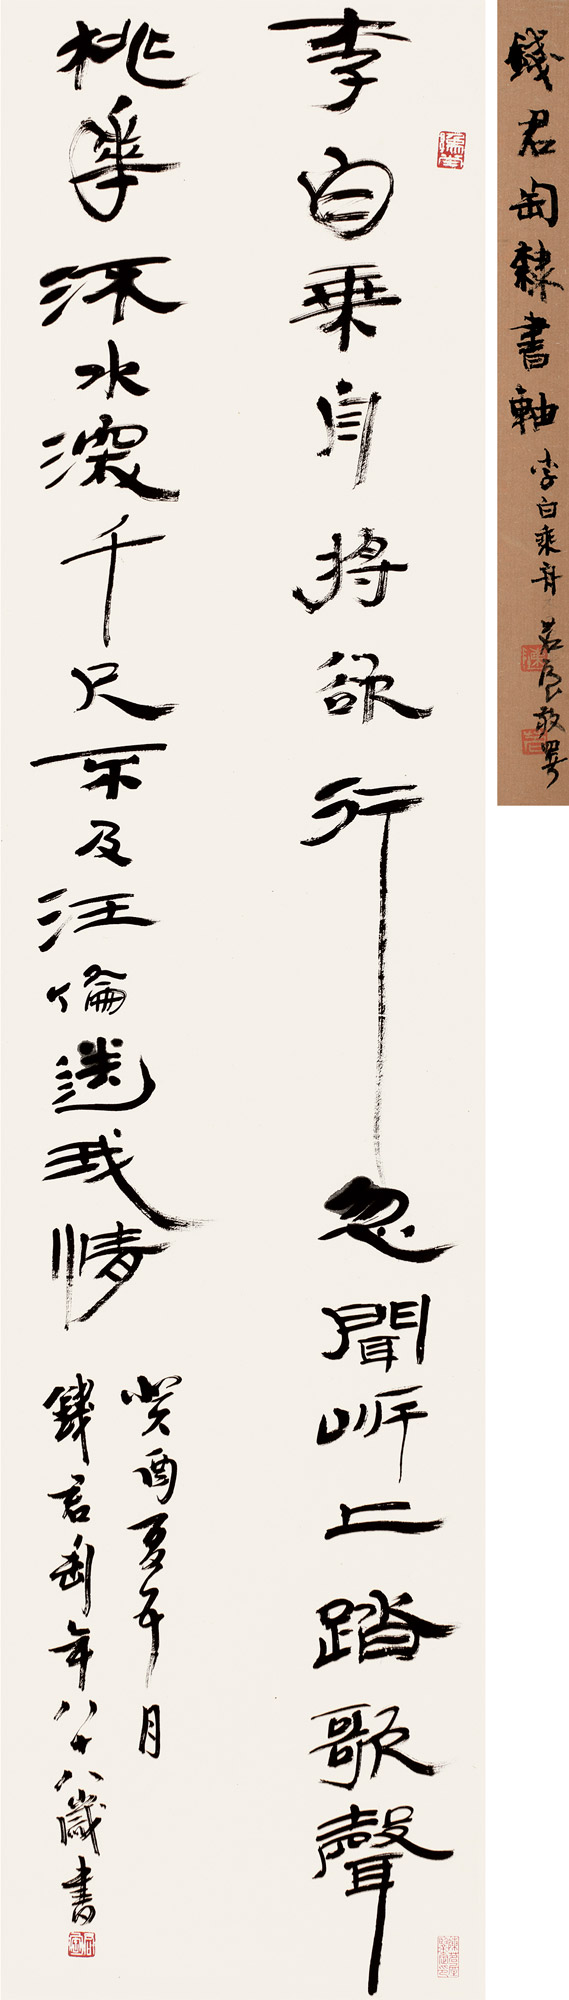 錢君匋隸書軸
李白乘舟
敬署
李白乗舟将欲行忽聞岸上踏歌聲
桃華潭水深千尺不及汪倫送我情
癸酉夏五月
錢君匋年八十八歲書